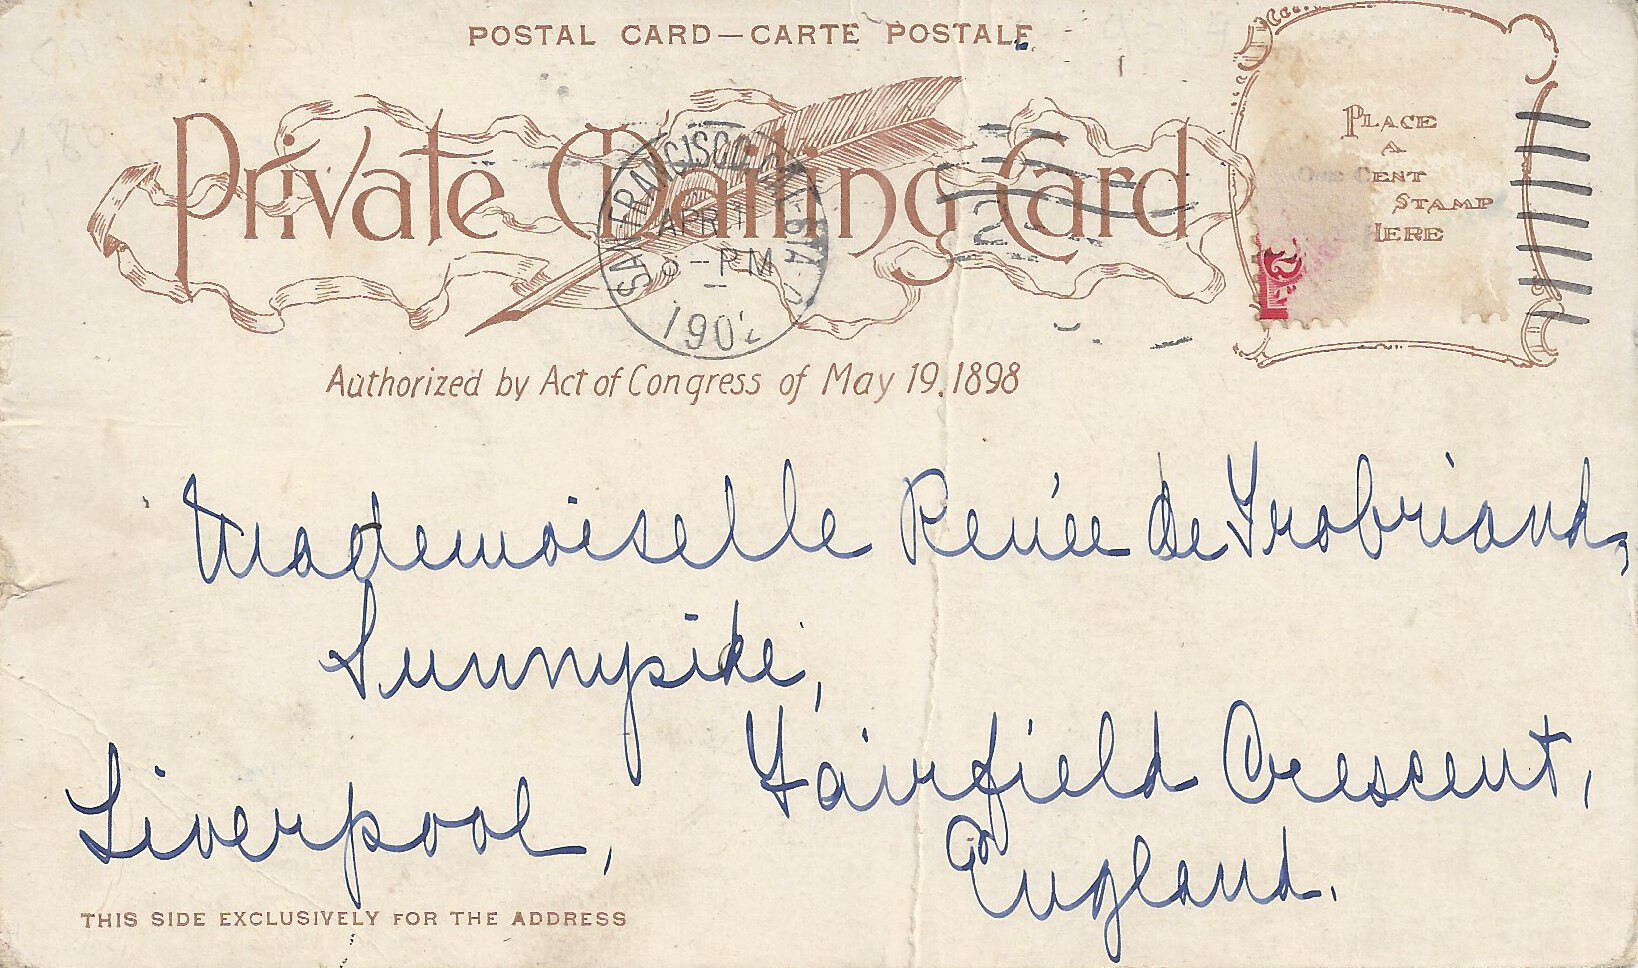 POSTAL CARD—CARTE POSTALE
Private Mailing Card
SAN FRANCISCO, CAL. STA.
APR
-PM
1902
2
PLACE
A
ONE CENT
STAMP
HERE
Authorized by Act of Congress of May 19, 1898
Mademoiselle Renée de Trobriand,
Sunnyside,
Fairfield Crescent,
Liverpool,
England.
THIS SIDE EXCLUSIVELY FOR THE ADDRESS